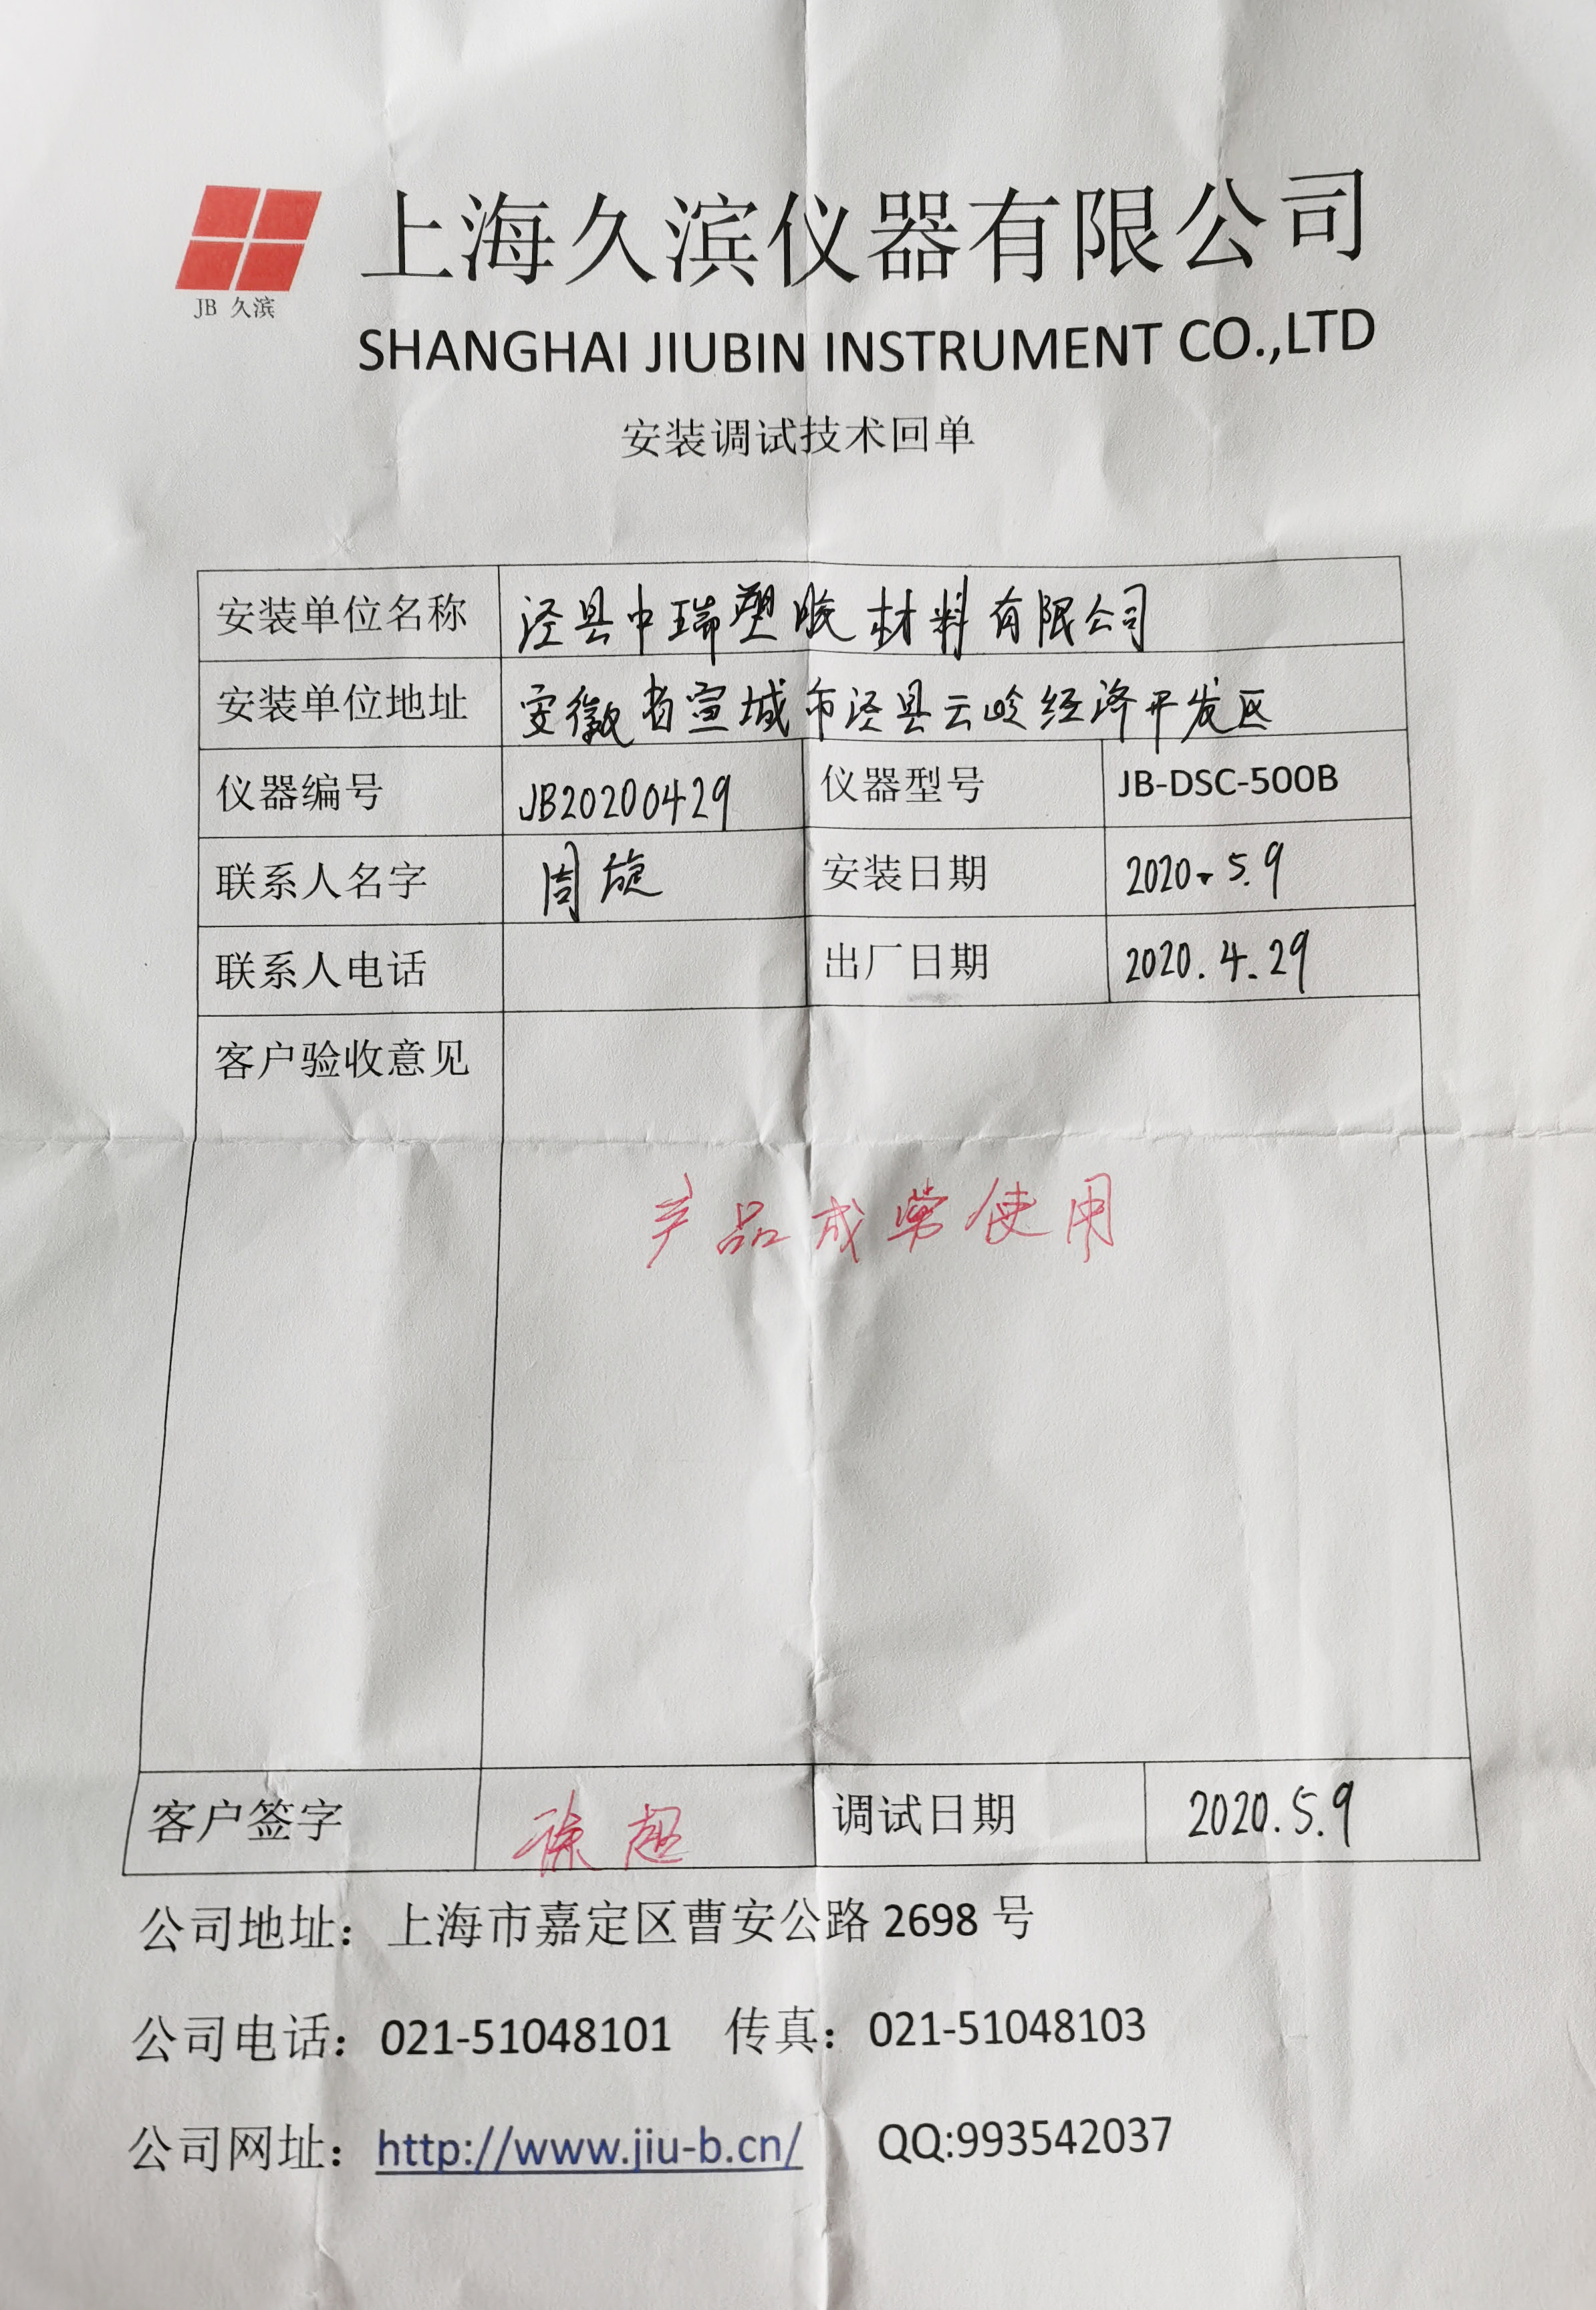 上海久滨仪器有限公司
JB 久滨
SHANGHAI JIUBIN INSTRUMENT CO.,LTD
安装调试技术回单
安装单位名称 泾县中瑞塑胶材料有限公司
安装单位地址 安徽省宣城市泾县云岭经济开发区
仪器编号 JB20200429 仪器型号 JB-DSC-500B
联系人名字 周旋 安装日期 2020.5.9
联系人电话 出厂日期 2020.4.29
客户验收意见
产品成常使用
客户签字 徐超 调试日期 2020.5.9
公司地址：上海市嘉定区曹安公路 2698 号
公司电话：021-51048101 传真：021-51048103
公司网址：http://www.jiu-b.cn/ QQ:993542037